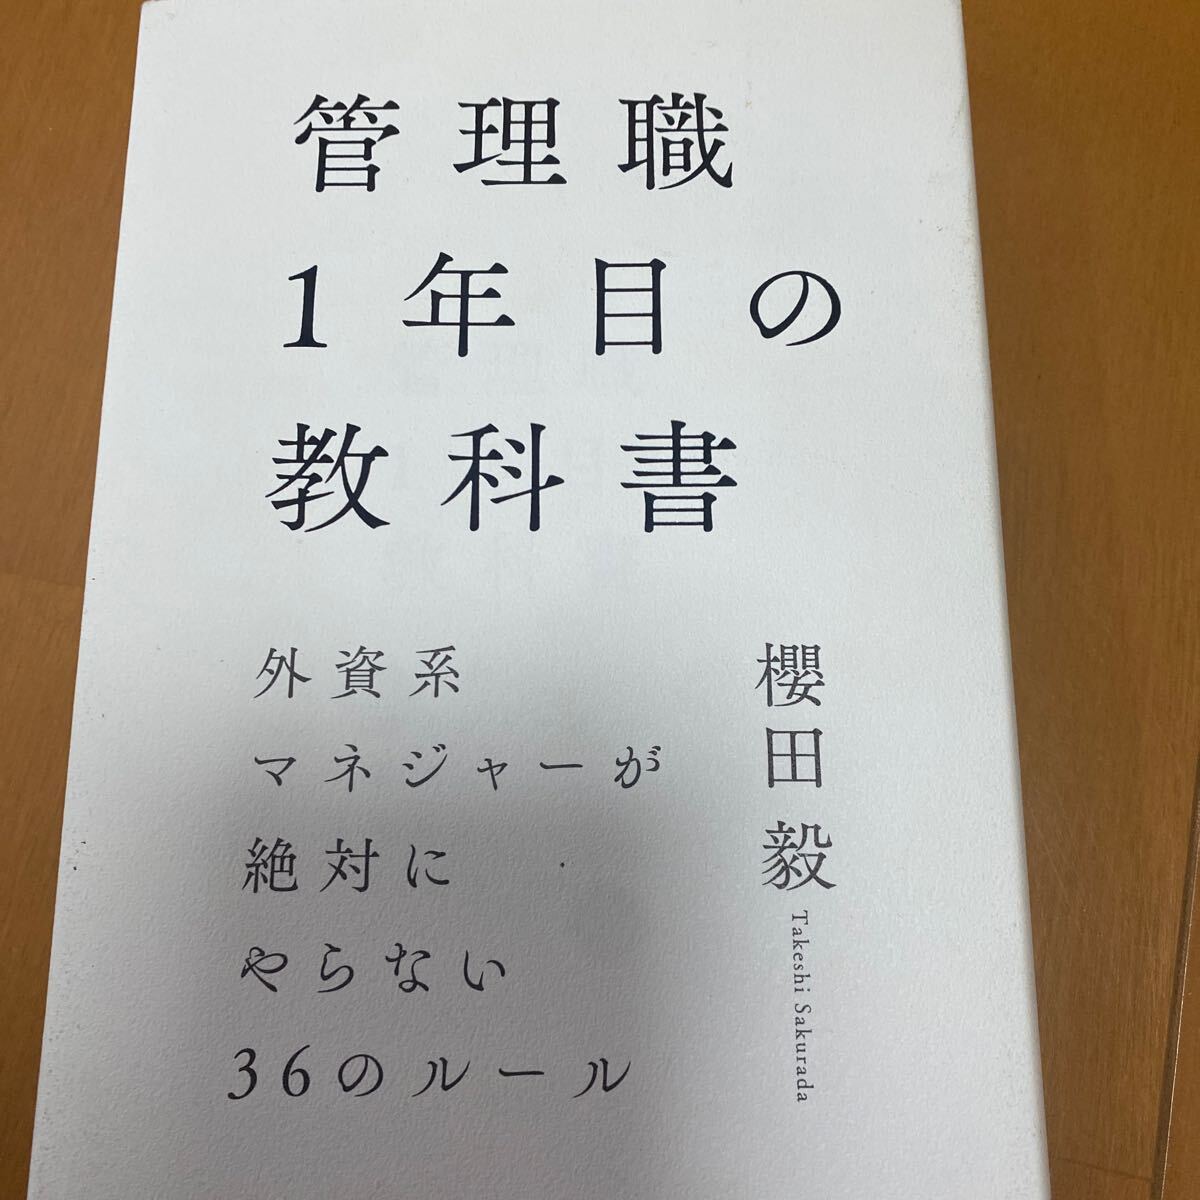 管理職
1年目の
教科書
外資系
マネジャーが
絶対に
やらない
36のルール
櫻田毅
Takeshi Sakurada